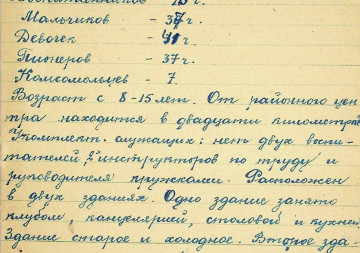 Мальчиков - 37 г.
Девочек - г.
Пионеров - 37 г.
Комсомольцев - 7.
Возраст с 8-15 лет. От районного цен-
тра находится в двадцати километрах
Укомплект. служащих: нет двух воспи-
тателей, 2 инструкторов по труду и
руководителя кружками. Расположен
в двух зданиях. Одно здание занято
клубом, канцелярией, столовой и кухней
Здание старое и холодное. Второе зда-